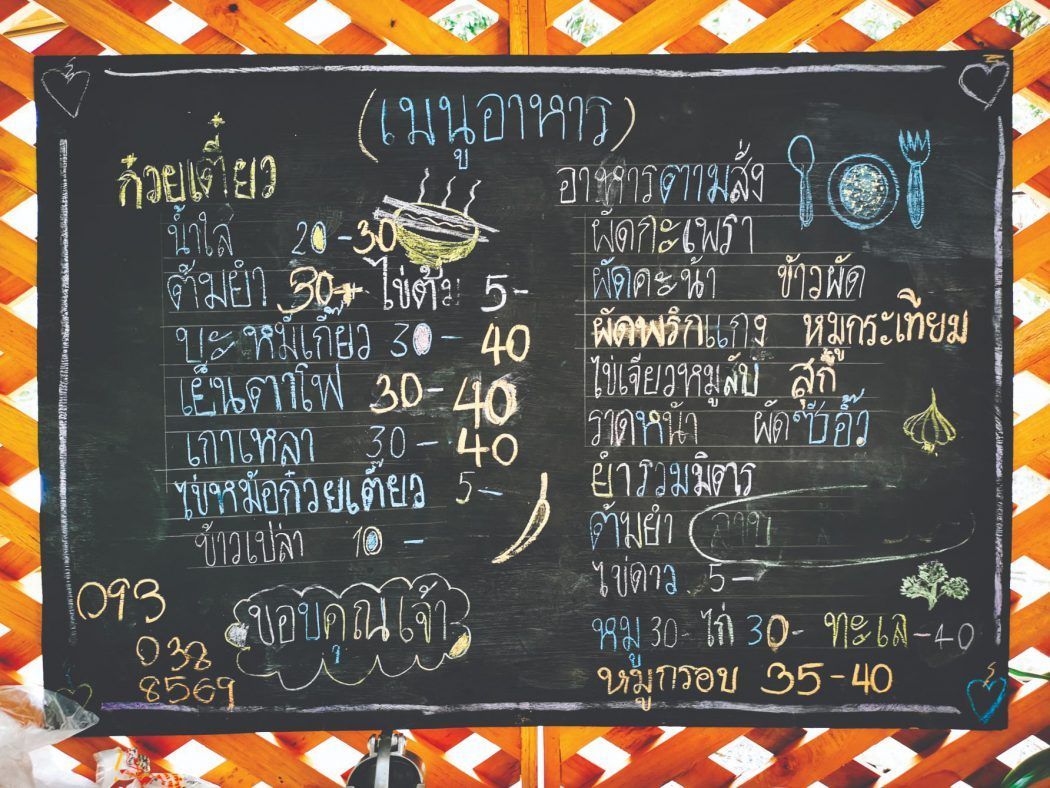 (เมนูอาหาร)
ก๋วยเตี๋ยว
น้ำใส 20-30
ต้มยำ 30+ ไข่ต้ม 5-
บะหมี่เกี๊ยว 30- 40
เย็นตาโฟ 30- 40
เกาเหลา 30- 40
ไข่หม้อก๋วยเตี๋ยว 5-
ข้าวเปล่า 10-
ขอบคุณเจ้า
093
038
8569
อาหารตามสั่ง
ผัดกะเพรา
ผัดคะน้า ข้าวผัด
ผัดพริกแกง หมูกระเทียม
ไข่เจียวหมูสับ สุกี้
ราดหน้า ผัดซีอิ๊ว
ยำรวมมิตร
ต้มยำ ลาบ
ไข่ดาว 5-
หมู 30- ไก่ 30- ทะเล-40
หมูกรอบ 35-40